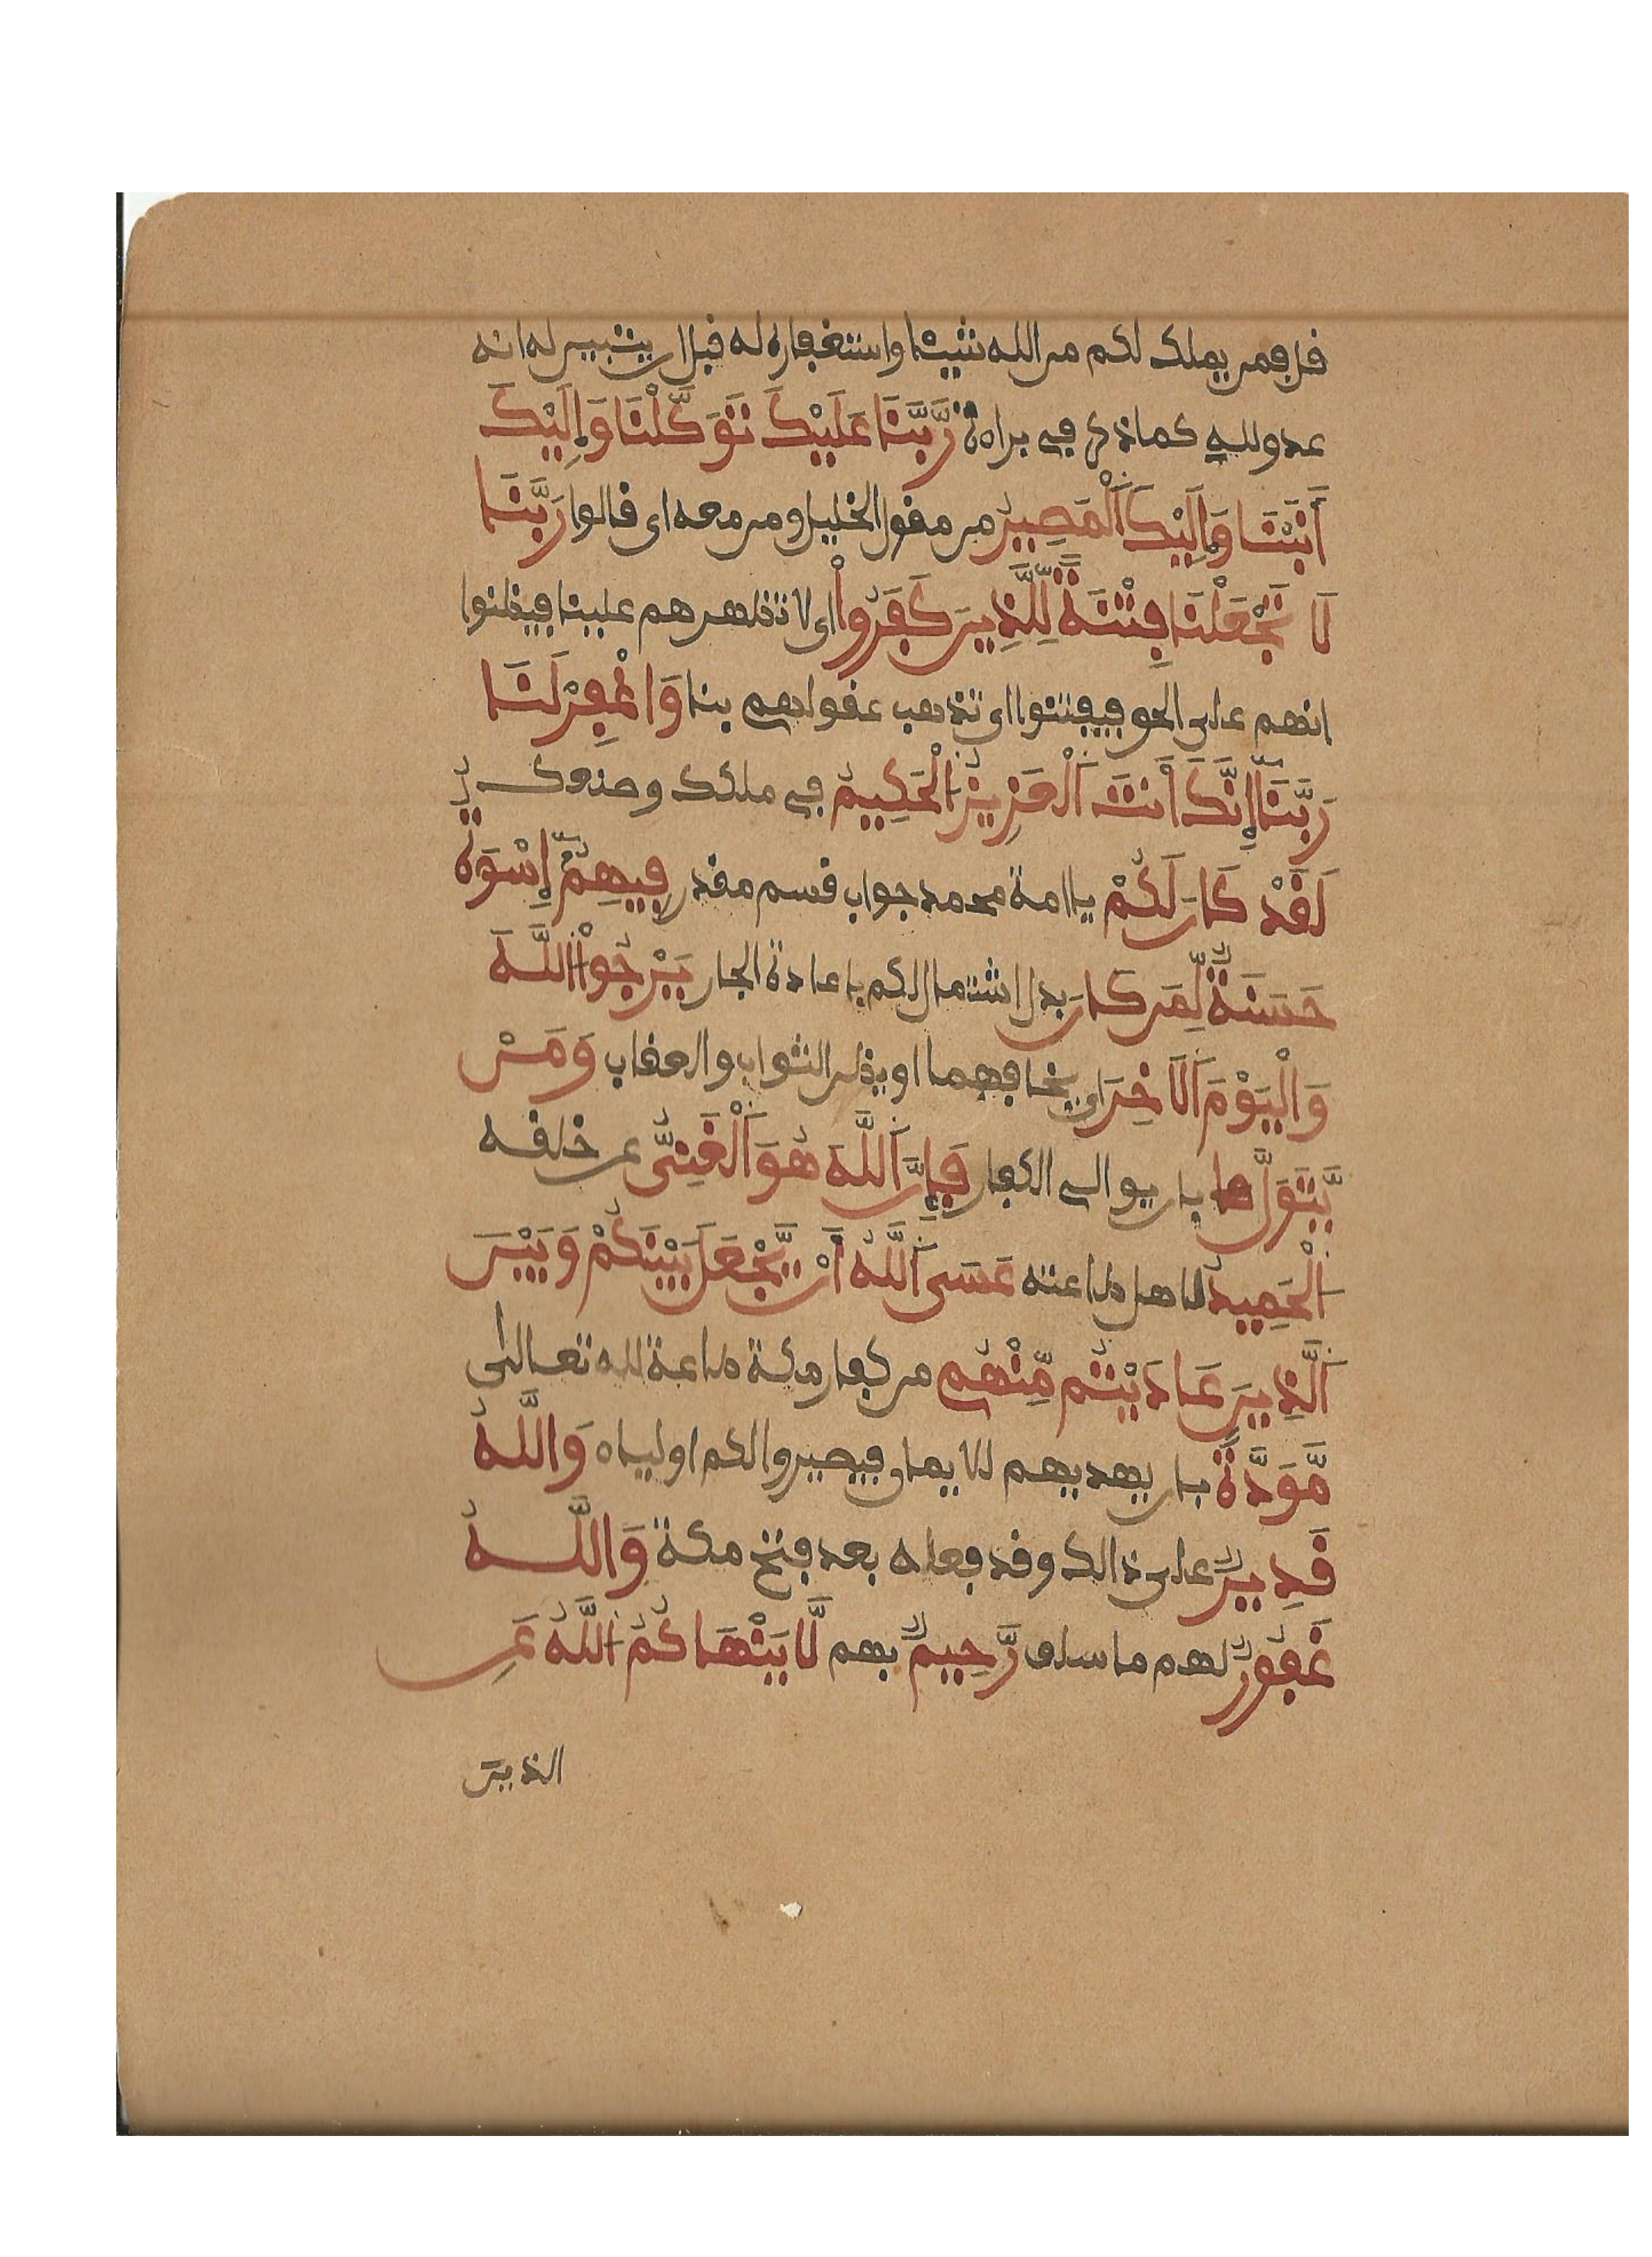 قل فمن يملك لكم من الله شيئا واستغفاره له قبل ان يتبين له انه
عدو لله كما ذكر في براءة رَبَّنَا عَلَيْكَ تَوَكَّلْنَا وَإِلَيْكَ
أَنَبْنَا وَإِلَيْكَ اَلْمَصِيرُ من مقول الخليل ومن معه اى قالوا رَبَّنَا
لَا تَجْعَلْنَا فِتْنَةً لِّلَّذِينَ كَفَرُواْ اى لا تظهرهم علينا فيظنوا
انهم على الحق فيفتنوا اى تذهب عقولهم بنا وَاغْفِرْ لَنَا
رَبَّنَا إِنَّكَ أَنتَ اَلْعَزِيزُ اَلْحَكِيمُ في ملكك وصنعك
لَقَدْ كَانَ لَكُمْ يا امة محمد جواب قسم مقدر فِيهِمُ إِسْوَةٌ
حَسَنَةٌ لِّمَن كَانَ بدل اشتمال لكم باعادة الجار يَرْجُواْ اللَّهَ
وَالْيَوْمَ اَلَاخِرَ اى يخافهما او يظن الثواب والعقاب وَمَنْ
يَّتَوَلَّ بان يوالي الكفار فَإِنَّ اَللَّهَ هُوَ اَلْغَنِيُّ عن خلقه
اَلْحَمِيدُ لاهل طاعته عَسَى اَللَّهُ أَنْ يَّجْعَلَ بَيْنَكُمْ وَبَيْنَ
اَلَّذِينَ عَادَيْتُم مِّنْهُم من كفار مكة طاعة لله تعالى
مَّوَدَّةً بان يهديهم للايمان فيصيروا لكم اولياء وَاللَّهُ
قَدِيرٌ على ذالك وقد فعله بعد فتح مكة وَاللَّهُ
غَفُورٌ لهم ما سلف رَّحِيمٌ بهم لَّا يَنْهَاكُمُ اللَّهُ عَنِ
الذين